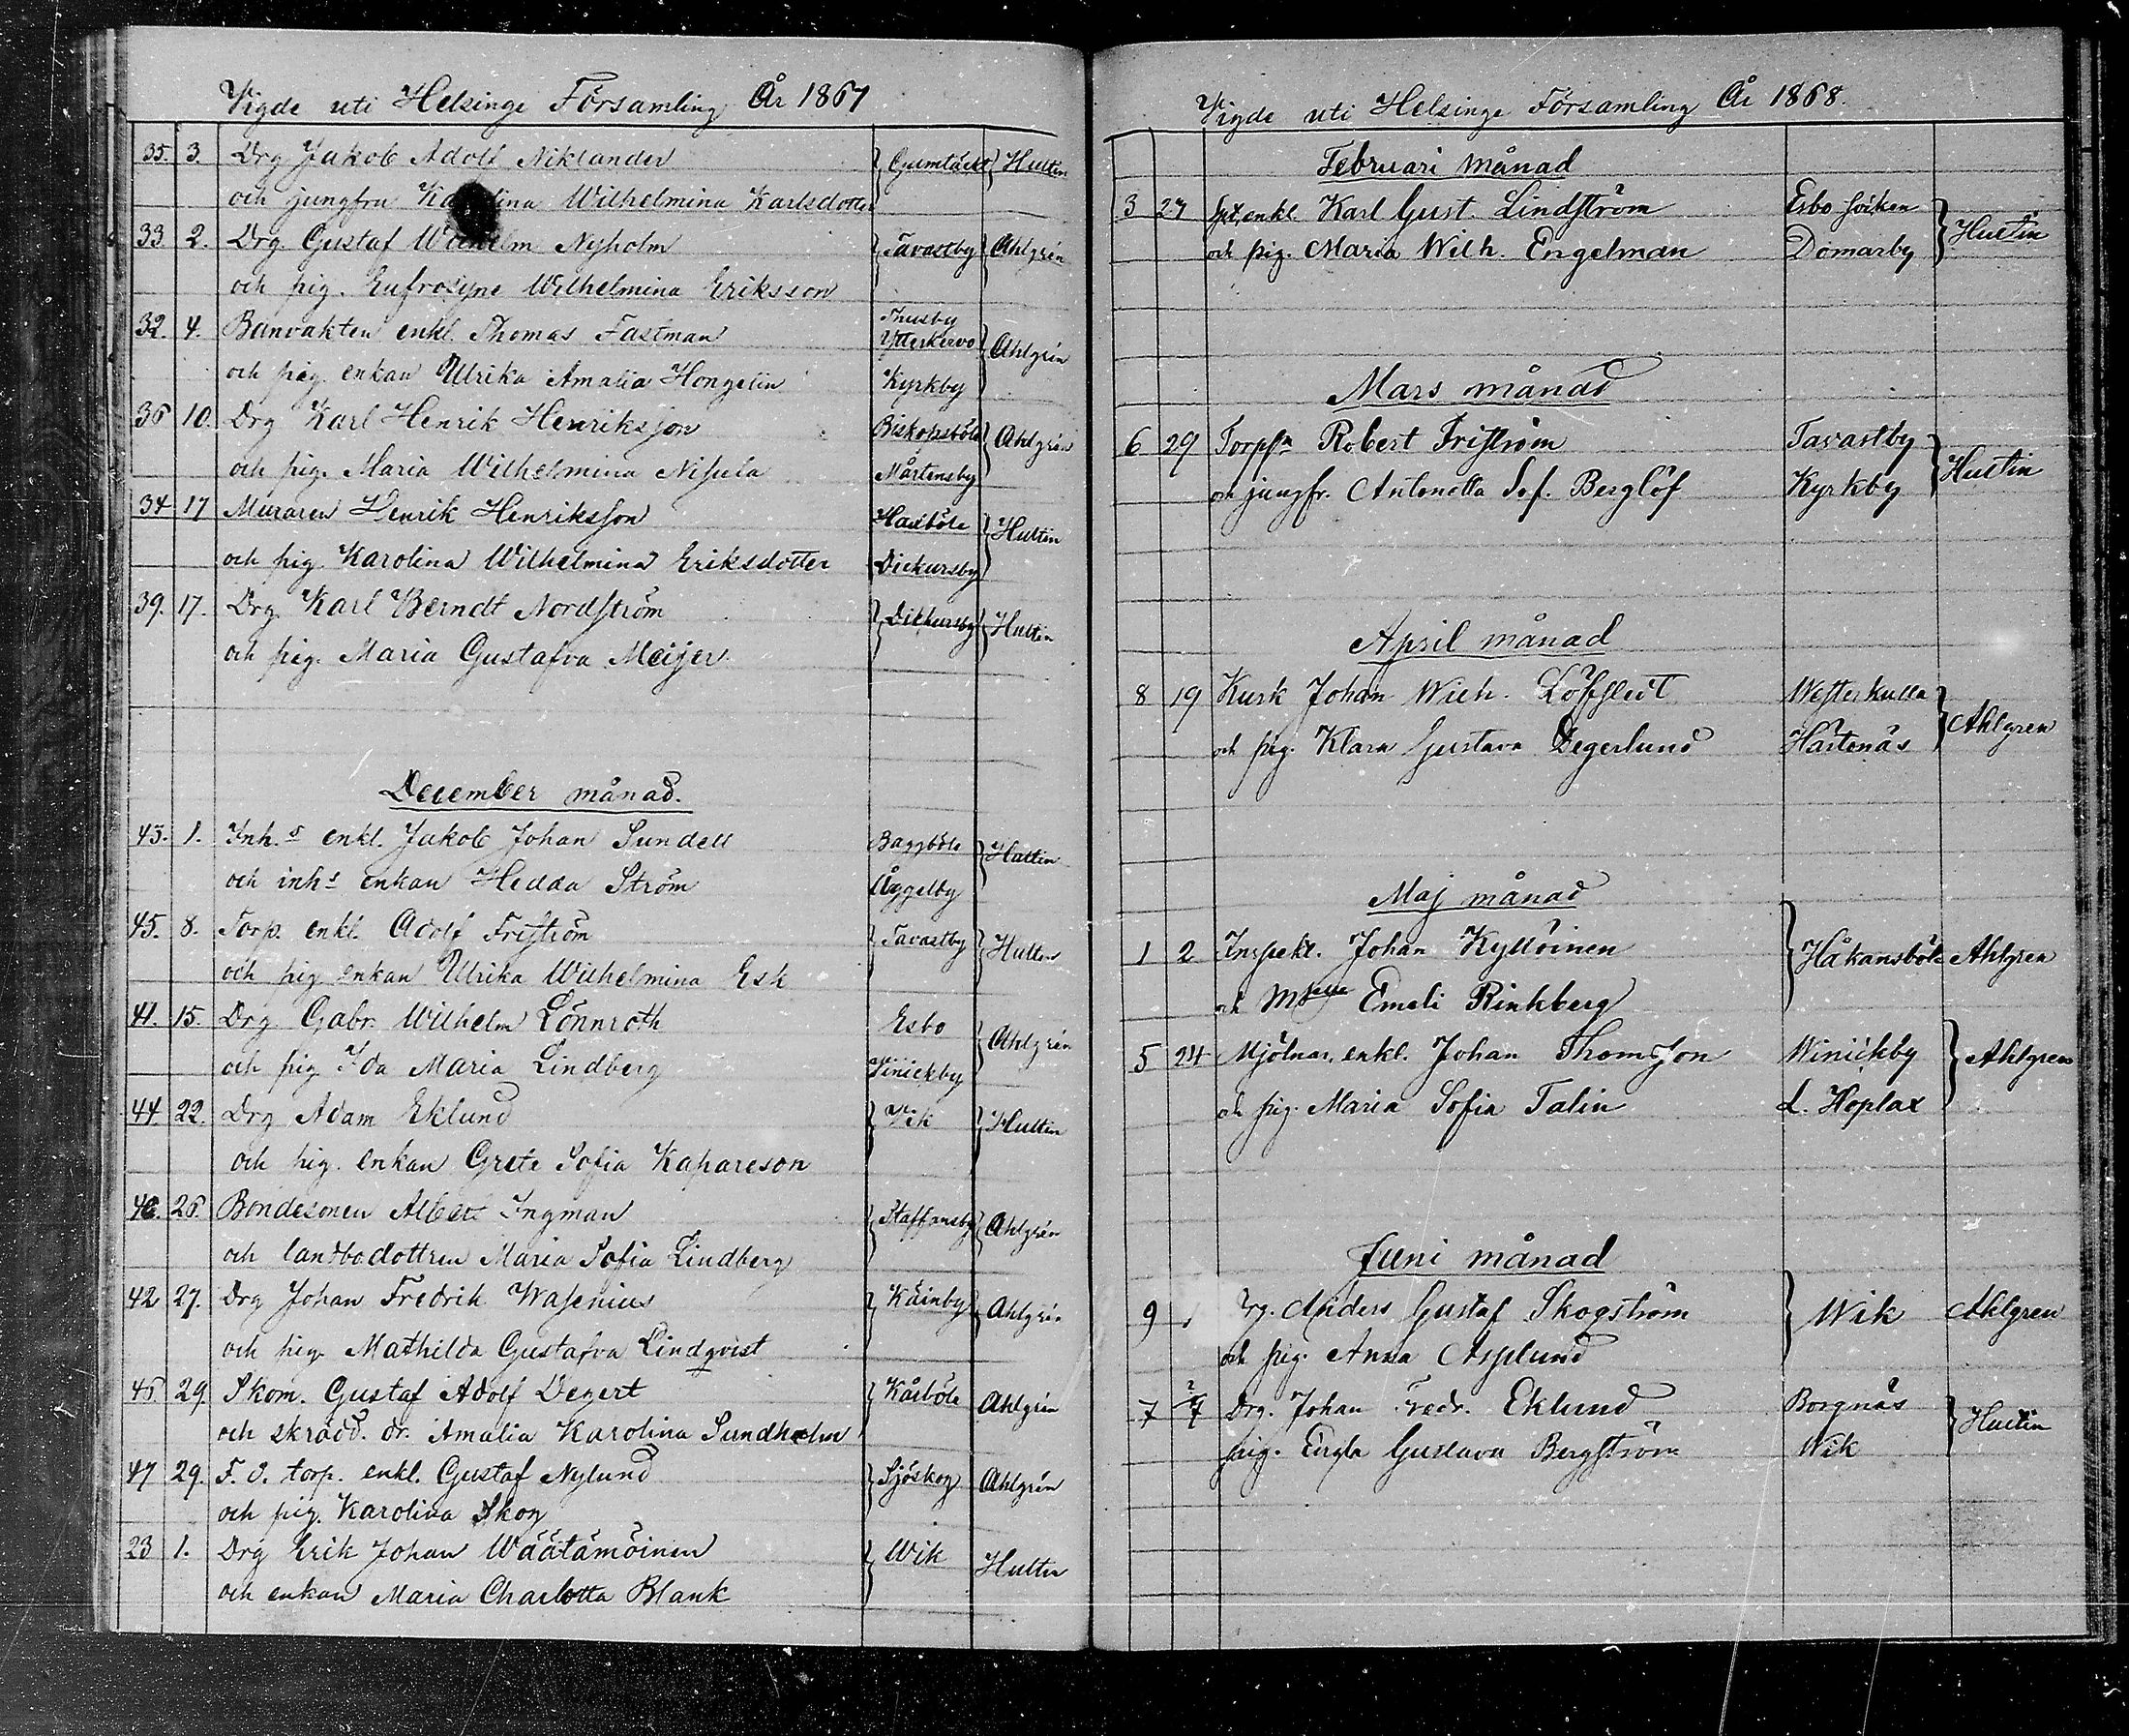 Vigde uti Helsinge Församling År 1867
35. 3. Drg Jakob Adolf Niklander } Gumtäckt } Hultin
och jungfru Karolina Wilhelmina Karlsdotter
33 2. Drg. Gustaf Wilhelm Nyholm } Tavastby } Ahlgrén
och pig. Eufrosyne Wilhelmina Eriksson
32. 4. Banvakten enkl. Thomas Fastman Thusby Ytterkervo } Ahlgrén
och pig. enkan Ulrika Amalia Hongelin Kyrkby
36 10. Drg Karl Henrik Henriksson Biskopsböle } Ahlgrén
och pig. Maria Wilhelmina Nisula Mårtensby
34 17 Muraren Henrik Henriksson Haxböle } Hultin
och pig. Karolina Wilhelmina Eriksdotter Dickursby
39. 17. Drg Karl Berndt Nordström } Dickursby } Hultin
och pig. Maria Gustafva Meijer
December månad.
43. 1. Inh.s enkl. Jakob Johan Sundell Baggböle } Hultin
och inhs enkan Hedda Ström Åggelby
45. 8. Torp. enkl. Adolf Friström } Tavastby } Hultin
och pig enkan Ulrika Wilhelmina Esk
41. 15. Drg Gabr. Wilhelm Lönnroth Esbo } Ahlgrén
och pig Ida Maria Lindberg Vinickby
44. 22. Drg Adam Eklund } Vik } Hultin
och pig. enkan Greta Sofia Kapareson
40. 26. Bondesonen Albert Ingman } Staffansby } Ahlgrén
och landbodottren Maria Sofia Lindberg
42 27. Drg Johan Fredrik Wasenius } Käinby } Ahlgrén
och pig. Mathilda Gustafva Lindqvist
46. 29. Skom. Gustaf Adolf Degert } Kårböle Ahlgrén
och skrädd. dr. Amalia Karolina Sundholm
47 29. F. d. torp. enkl. Gustaf Nylund } Sjöskog Ahlgrén
och pig. Karolina Skog
23 1. Drg Erik Johan Wäätämöinen } Wik Hultin
och enkan Maria Charlotta Blank
Vigde uti Helsinge Församling År 1868.
Februari månad
3 27 enkl. Karl Gust. Lindström Esbo socken } Hultin
och pig. Maria Wilh. Engelman Domarby
Mars månad
6 29 Torpsn Robert Friström Tavastby } Hultin
och jungfr. Antonetta Sof. Berglöf Kyrkby
April månad
8 19 Kusk Johan Wilh. Löfstedt Westerkulla } Ahlgren
och pig. Klara Gustava Degerlund Hastenäs
Maj månad
1 2 Inspekt. Johan Kyllöinen } Håkansböle Ahlgren
och Mselle Emeli Rinkberg
5 24 Mjölnar. enkl. Johan Thomsson Winickby } Ahlgren
och pig. Maria Sofia Talin L. Hoplax
Juni månad
9 Drg. Anders Gustaf Skogström } Wik Ahlgren
och pig. Anna Asplund
7 7 Drg. Johan Fredr. Eklund Borgnäs } Hultin
pig. Engla Gustava Bergström Wik